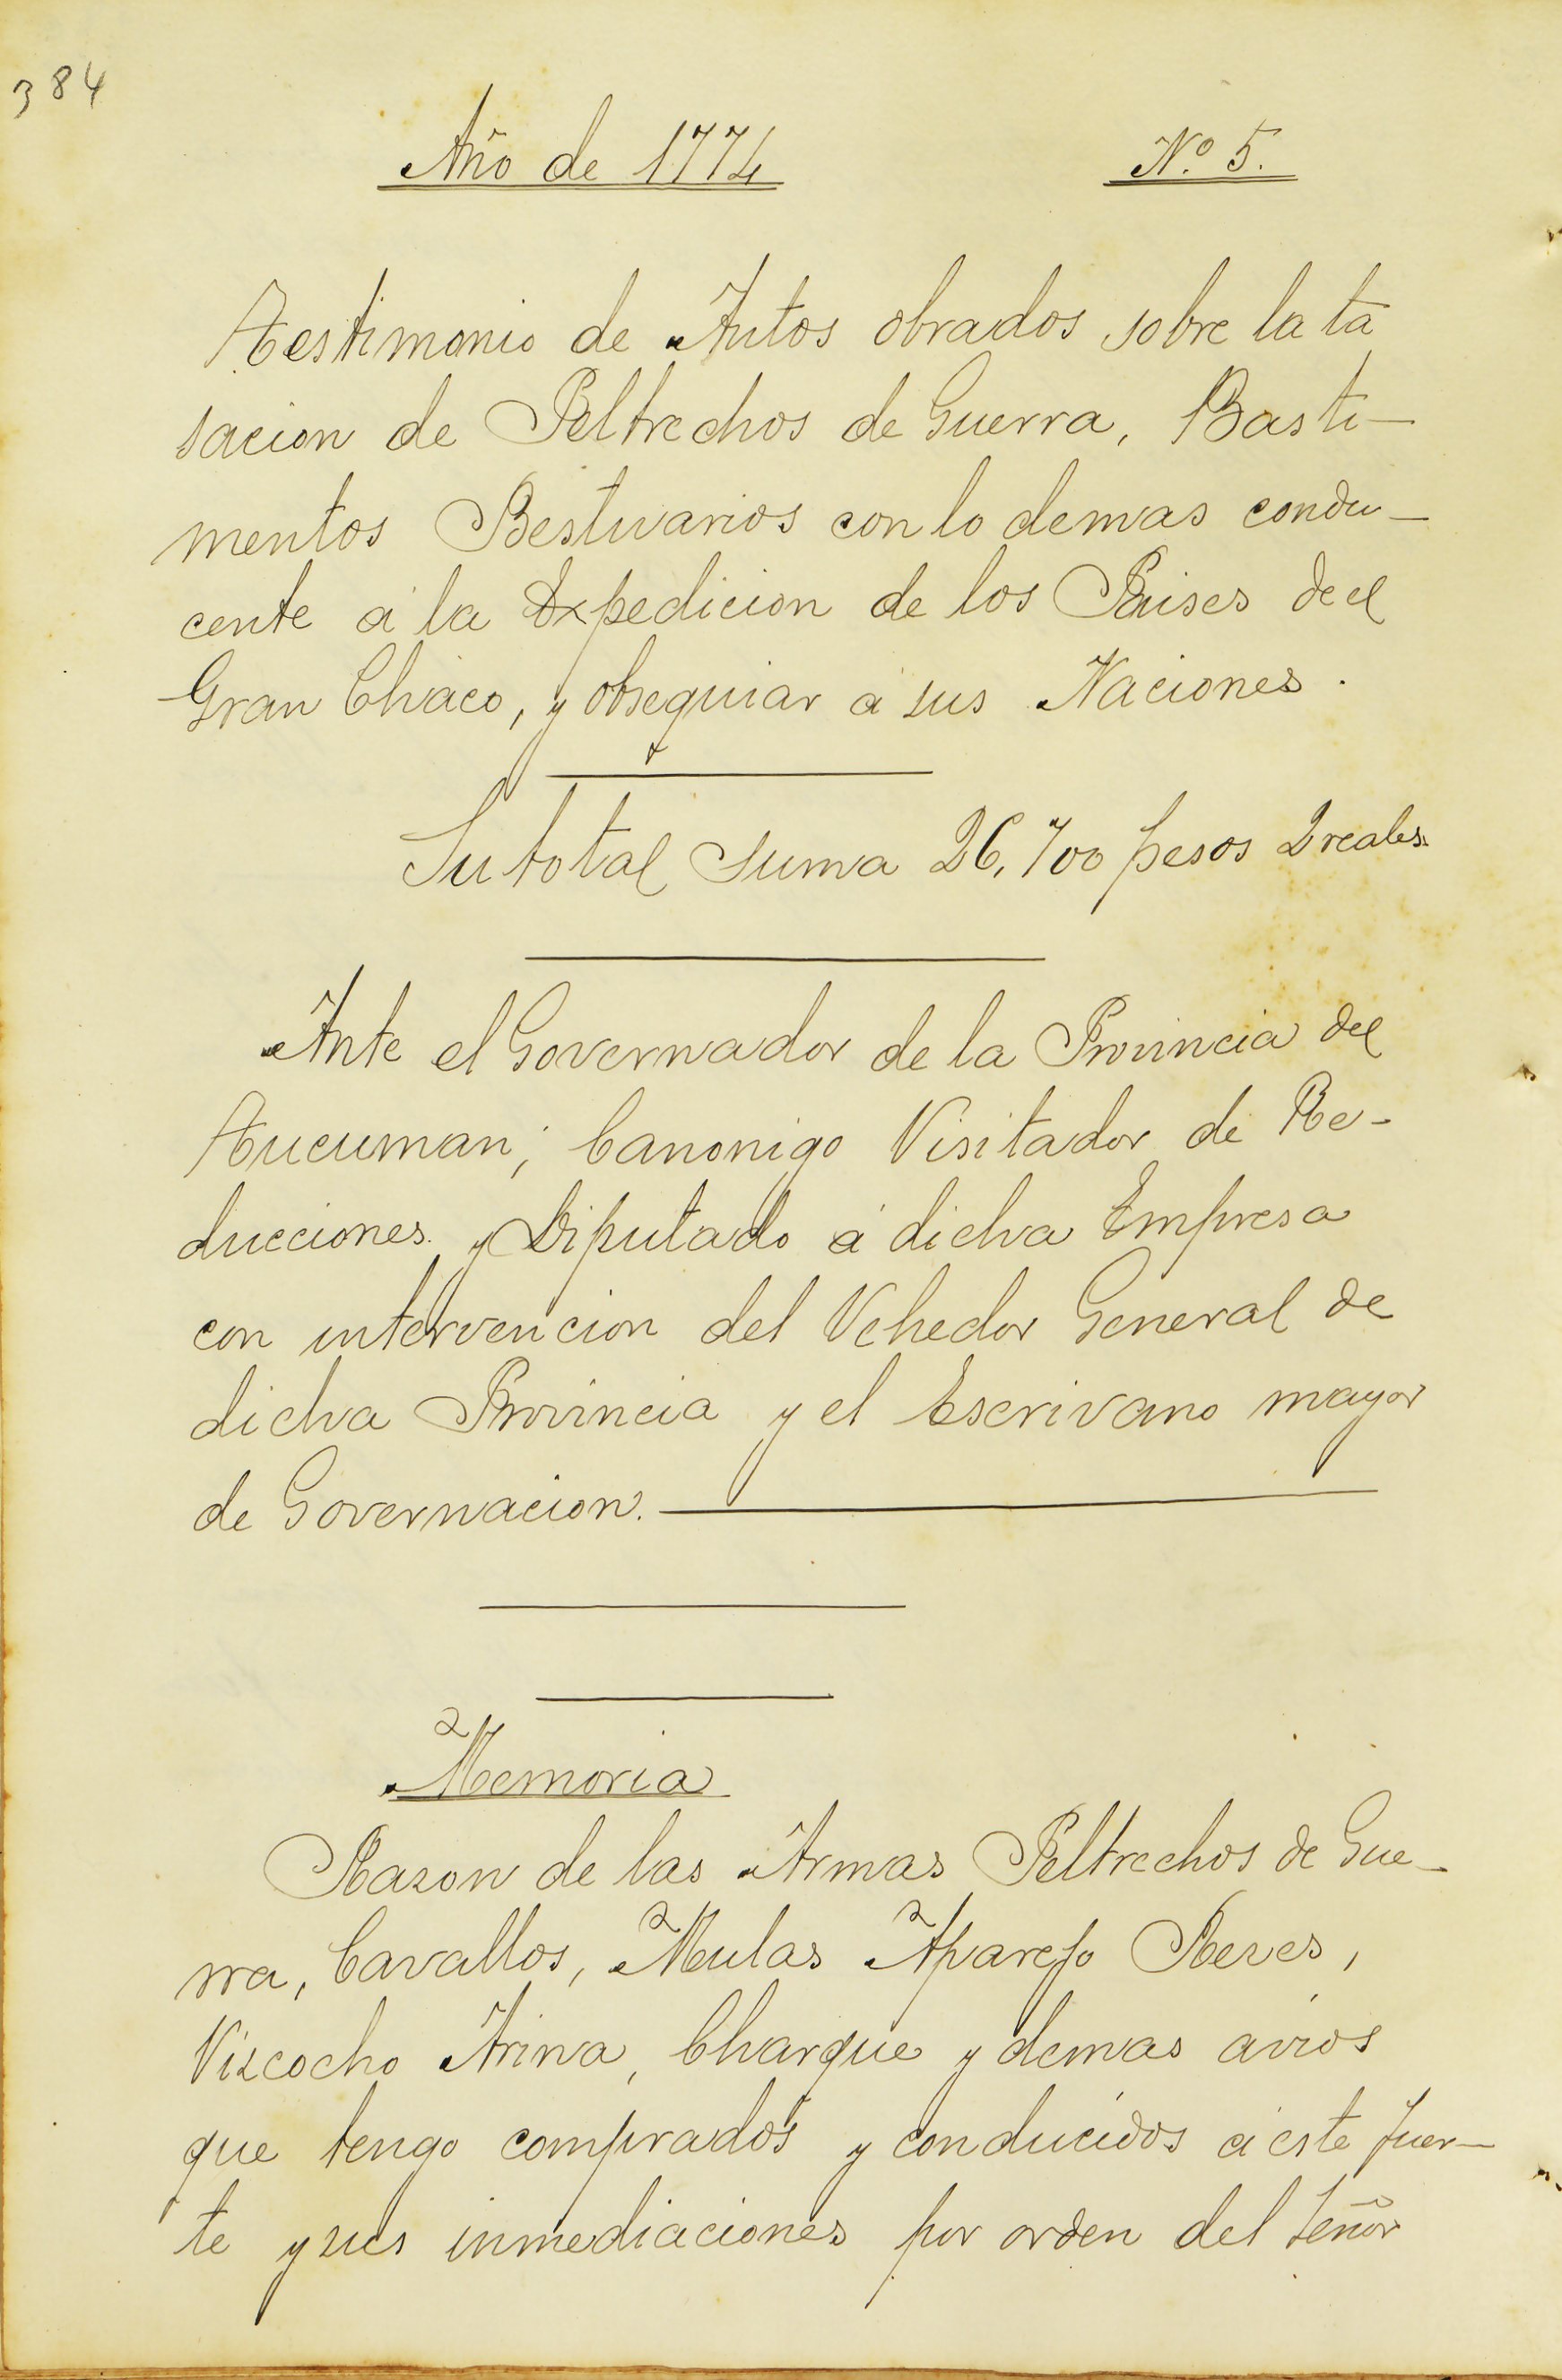 384
Año de 1774 Nº 5.
Testimonio de Autos obrados sobre la ta
sacion de Peltrechos de Guerra, Basti-
mentos Bestuarios con lo demas condu-
cente á la Expedicion de los Paises de el
Gran Chaco, y obsequiar á sus Naciones.
Su total suma 26,700 pesos 2 reales.
Ante el Governador de la Provincia del
Tucuman; Canonigo Visitador de Re-
ducciones y Diputado á dicha Empresa
con intervencion del Vehedor General de
dicha Provincia y el Escrivano mayor
de Governacion.
Memoria
Razon de las Armas Peltrechos de Gue-
rra, Cavallos, Mulas Aparejo Reses,
Vizcocho Arina, Charque y demas avíos
que tengo comprados y conducídos á este fuer-
te y sus inmediaciones por orden del Señor